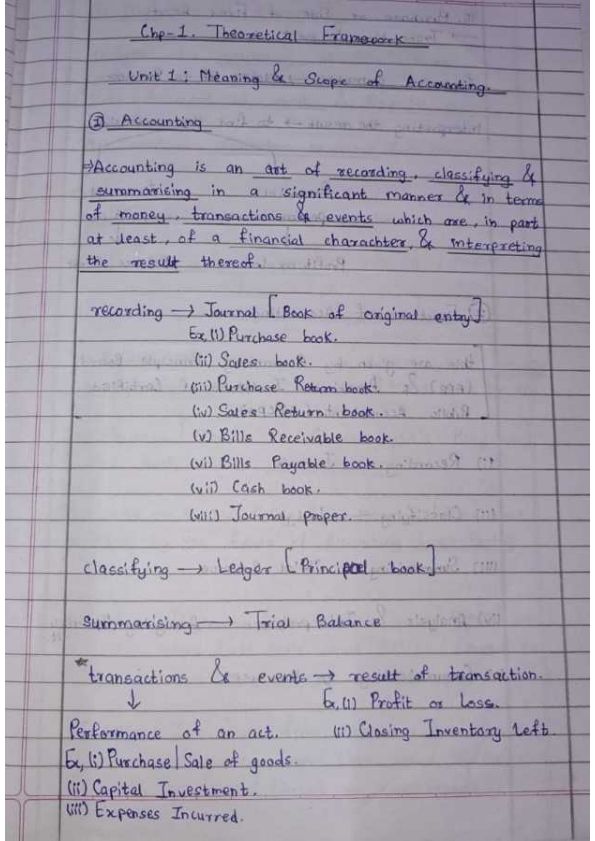 Chp-1. Theoretical Framework
Unit 1: Meaning & Scope of Accounting.
① Accounting
⇒Accounting is an art of recording, classifying &
summarising in a significant manner & in terms
of money, transactions & events which are, in part
at least, of a financial charachter, & interpreting
the result thereof.
recording → Journal [Book of original entry]
Ex, (i) Purchase book.
(ii) Sales book.
(iii) Purchase Return book.
(iv) Sales Return book.
(v) Bills Receivable book.
(vi) Bills Payable book.
(vii) Cash book.
(viii) Journal proper.
classifying → Ledger [Principal book]
Summarising → Trial Balance
*transactions & events → result of transaction.
↓ Ex, (i) Profit or Loss.
Performance of an act. (ii) Closing Inventory Left.
Ex, (i) Purchase | Sale of goods.
(ii) Capital Investment.
(iii) Expenses Incurred.